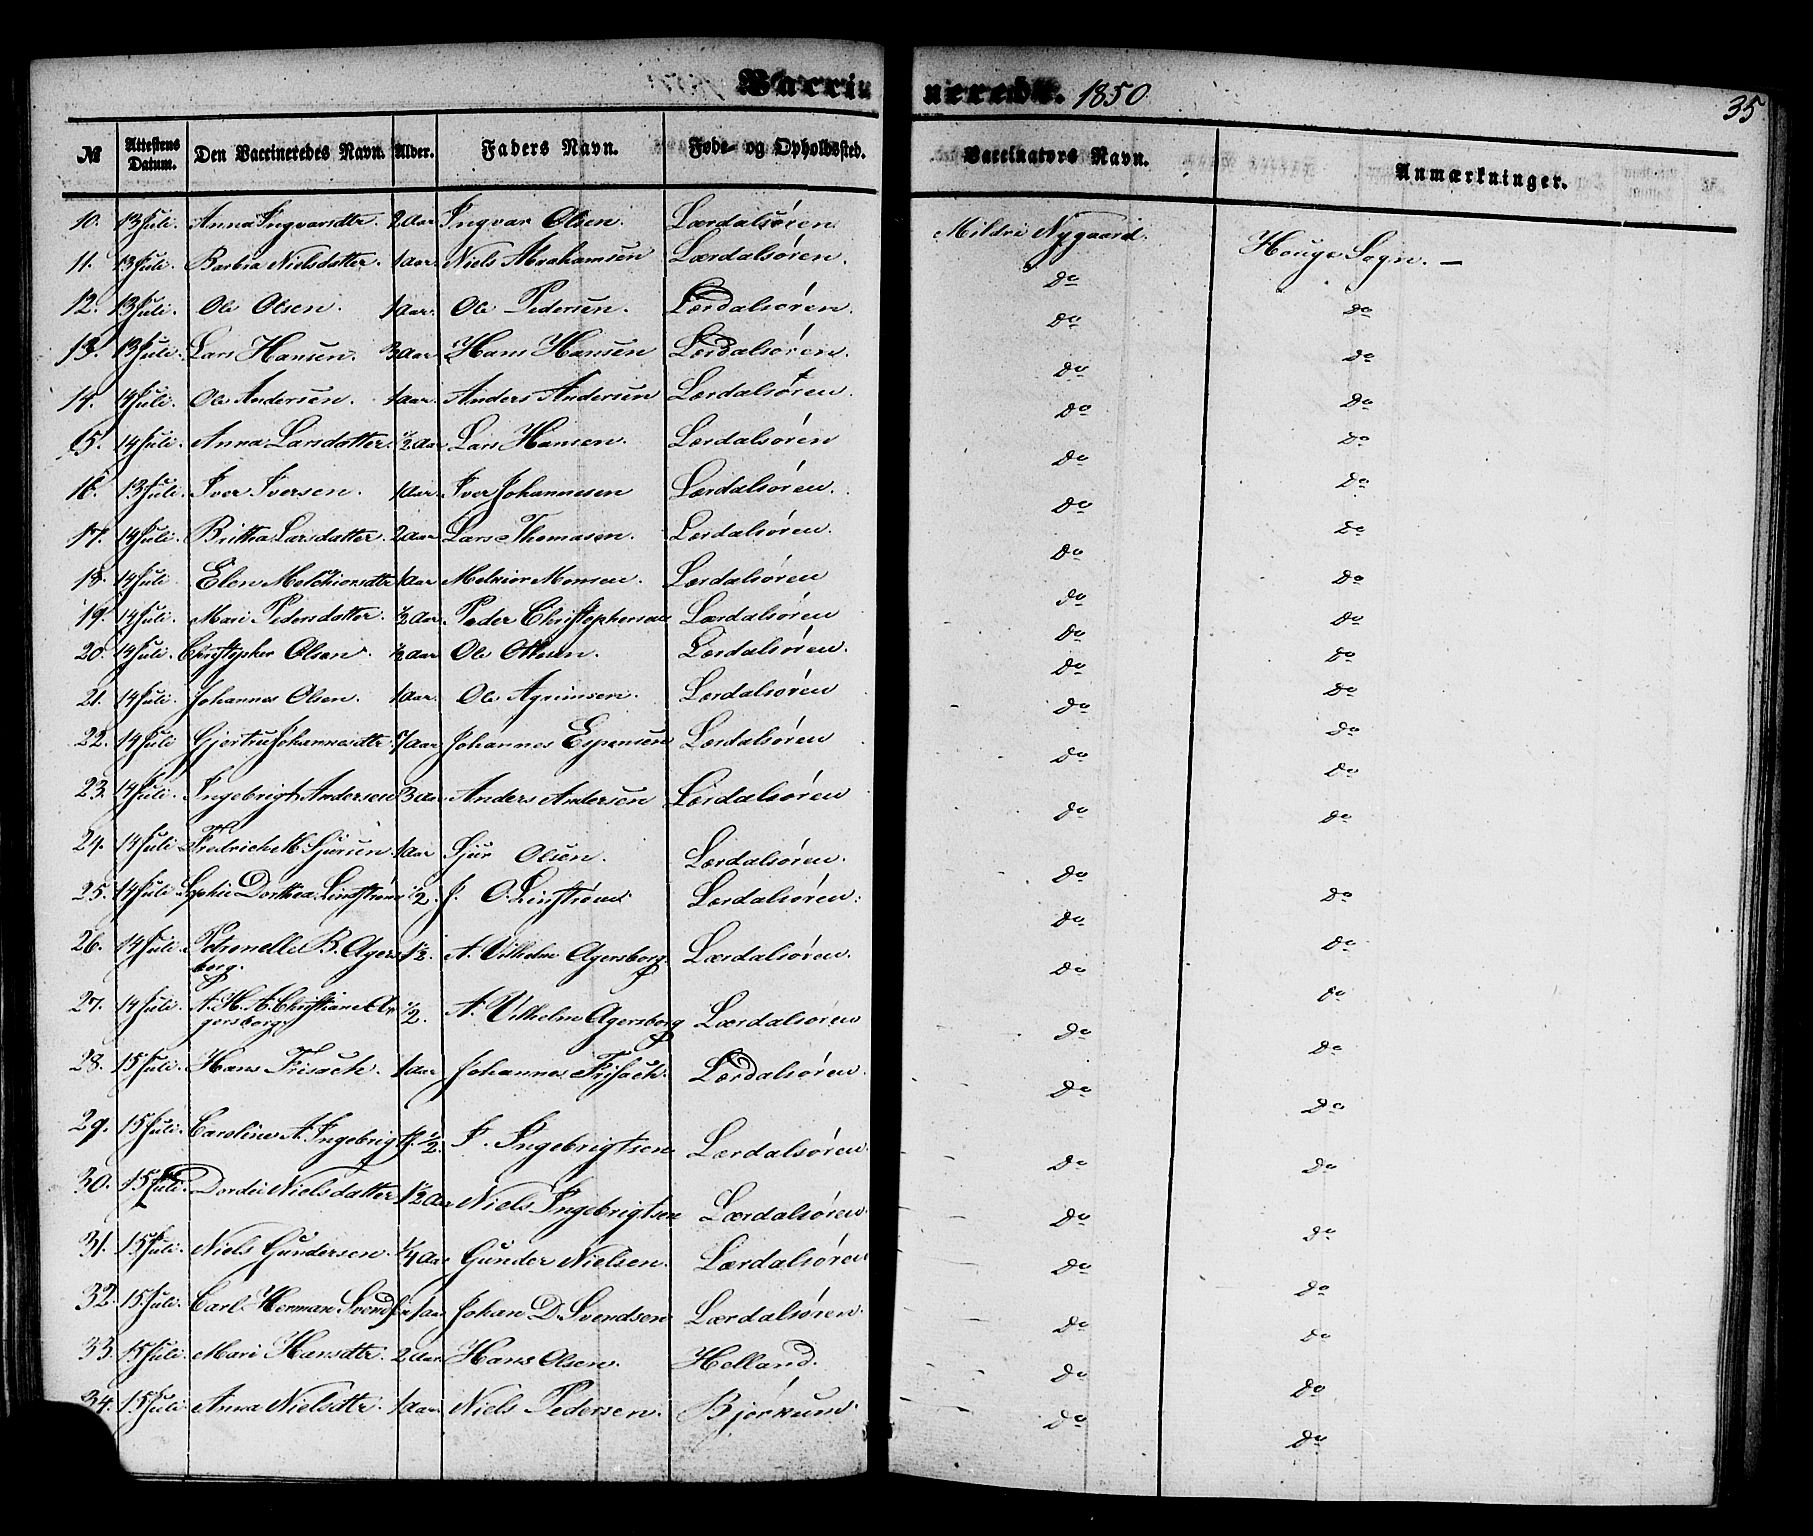 Vaccinerede. 1850 35
№ Attestens Datum. Den Vaccineredes Navn. Alder. Faders Navn. Føde- og Opholdssted. Vaccinators Navn. Anmærkninger.
10. 13 Juli. Anna Ingvarsdtr. 2 Aar Ingvar Olsen. Lærdalsøren. Mildri Nygaard. Houge Sogn. —
11. 13 Juli. Barbra Nielsdatter. 1 Aar. Niels Abrahamsen Lærdalsøren. do
12. 13 Juli. Ole Olsen. 1 Aar. Ole Pedersen. Lærdalsøren. do do
13. 13 Juli. Lars Hansen. 3 Aar Hans Hansen Lærdalsøren. do do
14. 14 Juli. Ole Andersen. 1 Aar. Anders Andersen Lærdalsøren. do do
15. 14 Juli. Anna Larsdatter. ½ Aar Lars Hansen. Lærdalsøren do do
16. 13 Juli. Iver Iversen. 1 Aar. Iver Johannesen Lærdalsøren. do do
17. 14 Juli. Brittha Larsdatter. 2 Aar Lars Thomasen. Lærdalsøren. do do
18. 14 Juli. Elen Melchiorsdtr 1 Aar Melkior Monsen. Lærdalsøren do do
19. 14 Juli. Mari Pedersdatter. ½ Aar Peder Christophersen Lærdalsøren do do
20. 14 Juli. Christopher Olsen. ½ Aar Ole Olsen. Lærdalsøren. do do
21. 14 Juli. Johannes Olsen. 1 Aar. Ole Agrimsen. Lærdalsøren do do
22. 14 Juli Gjertru Johannesdtr. Aar Johannes Espensen Lærdalsøren do do
23. 14 Juli. Ingebrigt Andersen 3 Aar Anders Andersen Lærdalsøren do do
24. 14 Juli Fredrich M. Sjursen. 1 Aar Sjur Olsen. Lærdalsøren. do do
25. 14 Juli Sophie Dorthea Linstrøm ½. J. O. Linstrøm. Lærdalsøren. do do
26. 14 Juli. Petronelle B. Agers-
borg. 1½. A. Vilhelm Agersborg. Lærdalsøren. do do
27. 14 Juli. A. H. A. Christiane A-
gersborg ½. A. Vilhelm Agersborg Lærdalsøren do do
28. 15 Juli. Hans Frisach. 1 Aar Johannes Frisach. Lærdalsøren. do do
29. 15 Juli. Caroline A. Ingebrigts. ½. I. Ingebrigtsen Lærdalsøren. do do
30. 15 Juli. Dordei Nielsdatter 1½ Aar Niels Ingebrigtsen Lærdalsøren do do
31. 15 Juli. Niels Gundersen. ¼ Aar Gunder Nielsen. Lærdalsøren do do
32. 15 Juli. Carl Herman Svendsen 1 Aar Johan D. Svendsen Lærdalsøren. do do
33. 15 Juli. Mari Hansdtr. 2 Aar. Hans Olsen. Helland. do do
34. 15 Juli. Anna Nielsdtr. 1 Aar. Niels Pedersen. Bjørkum. do do
do